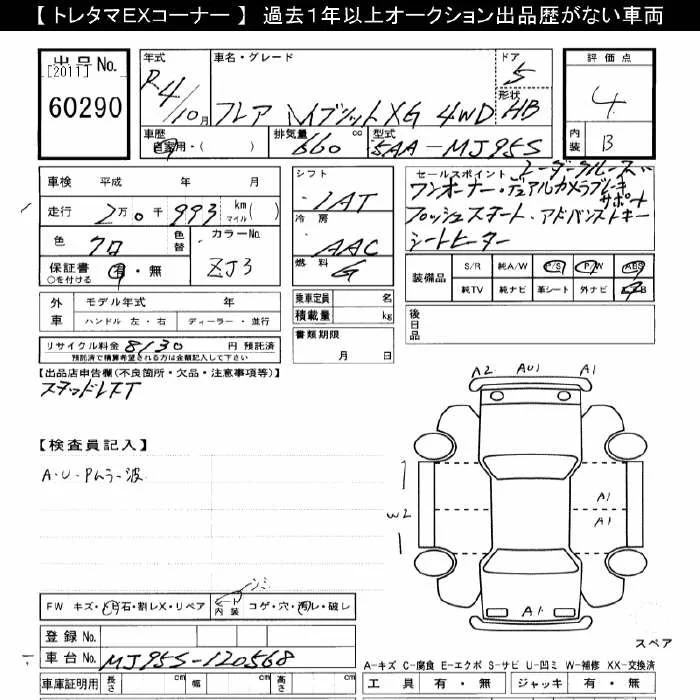 【 トレタマEXコーナー 】 過去1年以上オークション出品歴がない車両
出品No.
[2011]
60290
年式
R4/10月
車名・グレード
フレア ハイブリットXG 4WD
ドア
5
形状
HB
評価点
4
内装
B
車歴
自家用・( )
排気量
660 cc
型式
5AA-MJ95S
車検 平成 年 月
走行 2万0千993 km マイル( )
色 クロ
色替
カラーNo.
ZJ3
保証書 有・無
○を付ける
シフト
IAT
冷房
AAC
燃料
G
セールスポイント レーダークルーズ
ワンオーナー・デュアルカメラブレーキサポート
プッシュスタート・アドバンストキー
シートヒーター
装備品
S/R 純A/W P/S P/W ABS
純TV 純ナビ 革シート 外ナビ
外車
モデル年式 年
ハンドル 左・右 ディーラー・並行
乗車定員 名
積載量 kg
書類期限
月 日
後日品
リサイクル料金 8130 円 預託済
預託済で精算希望される方は金額記入して下さい
【出品店申告欄(不良箇所・欠品・注意事項等)】
スタッドレスT
A2 AU1 A1
【検査員記入】
A・U・Pムラ・波
W2
A1
A1
A1
FW キズ・飛石・割レX・リペア
内装 コゲ・穴・汚レ・破レ
登録No.
車台No. MJ95S-120568
スペア
A-キズ C-腐食 E-エクボ S-サビ U-凹ミ W-補修 XX-交換済
車庫証明用 長さ cm 幅 cm 高さ cm
工具 有・無 ジャッキ 有・無